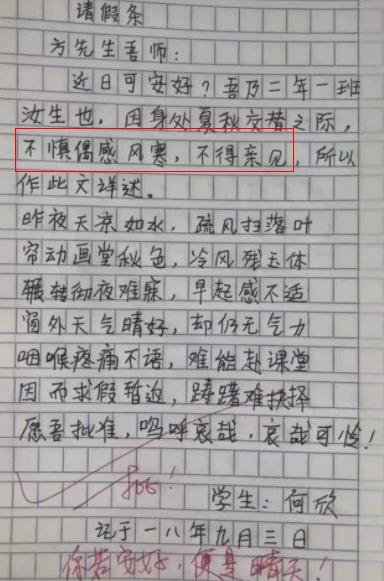 请假条
方先生吾师：
近日可安好？吾乃二年一班
汝生也，因身处夏秋交替之际，
不慎偶感风寒，不得亲见，所以
作此文详述。
昨夜天凉如水，疏风扫落叶
帘动画堂秋色，冷风残玉体
辗转彻夜难寐，早起感不适
窗外天气晴好，却仍无气力
咽喉疼痛不语，难能赴课堂
因而求假暂返，踌躇难抉择
愿吾批准，呜呼哀哉，哀哉可怜！
批！
学生：何欣
记于一八年九月三日
你若安好，便是晴天！